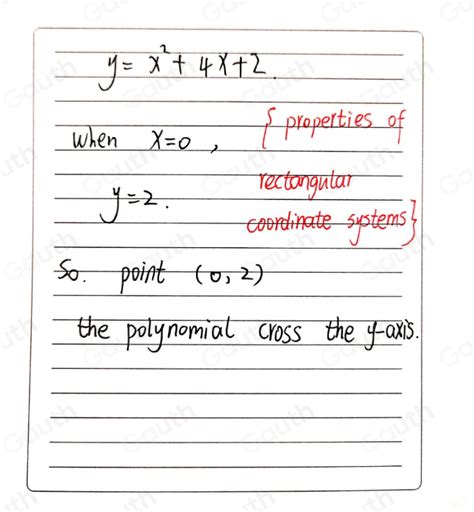 y = x² + 4x+2.
when x=0 , { properties of
rectangular
y=2.
coordinate systems}
So. point (0, 2)
the polynomial cross the y-axis.